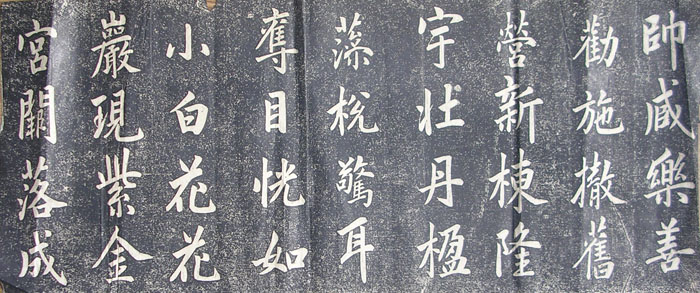 帥咸樂善
勸施撤舊
營新棟隆
宇壮丹楹
藻梲驚耳
奪目恍如
小白花花
巖現紫金
宮闕落成